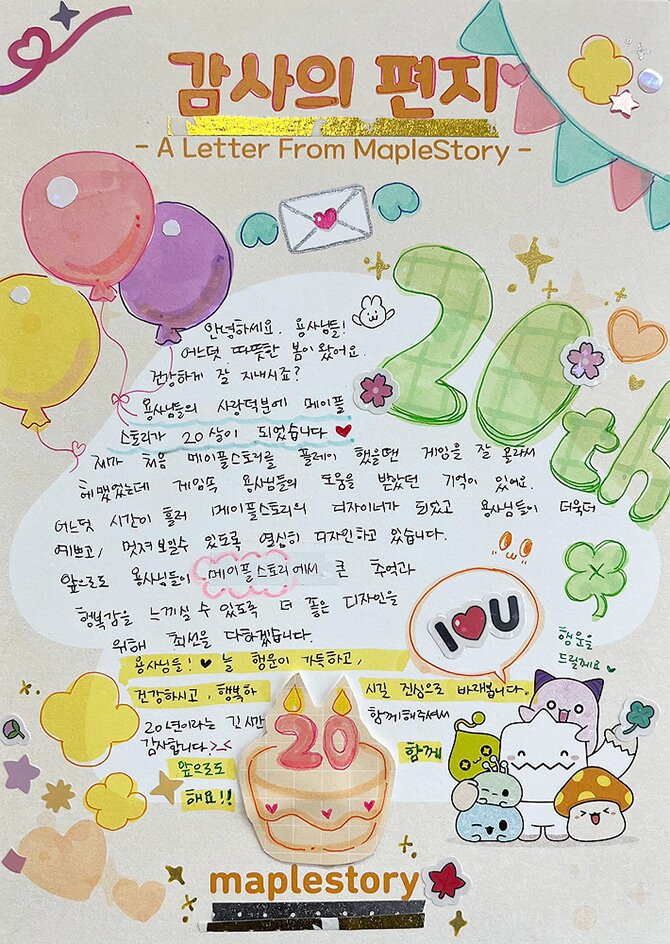 감사의 편지
- A Letter From MapleStory -
안녕하세요. 용사님들!
어느덧 따뜻한 봄이 왔어요.
건강하게 잘 지내시죠?
용사님들의 사랑덕분에 메이플
스토리가 20살이 되었습니다 ♥
제가 처음 메이플스토리를 플레이 했을땐 게임을 잘 몰라서
헤맸었는데 게임속 용사님들의 도움을 받았던 기억이 있어요.
어느덧 시간이 흘러 메이플스토리의 디자이너가 되었고 용사님들이 더욱더
예쁘고, 멋져보일수 있도록 열심히 디자인하고 있습니다.
앞으로도 용사님들이 메이플스토리에서 큰 추억과
행복감을 느끼실 수 있도록 더 좋은 디자인을
위해 최선을 다하겠습니다.
용사님들! ♥ 늘 행운이 가득하고,
건강하시고, 행복하시길 진심으로 바래봅니다.
20년이라는 긴 시간 함께해주셔서
감사합니다 >_<
앞으로도 함께
해요!!
20th
I ♥ U
행운을
드릴께요 ♥
20
maplestory